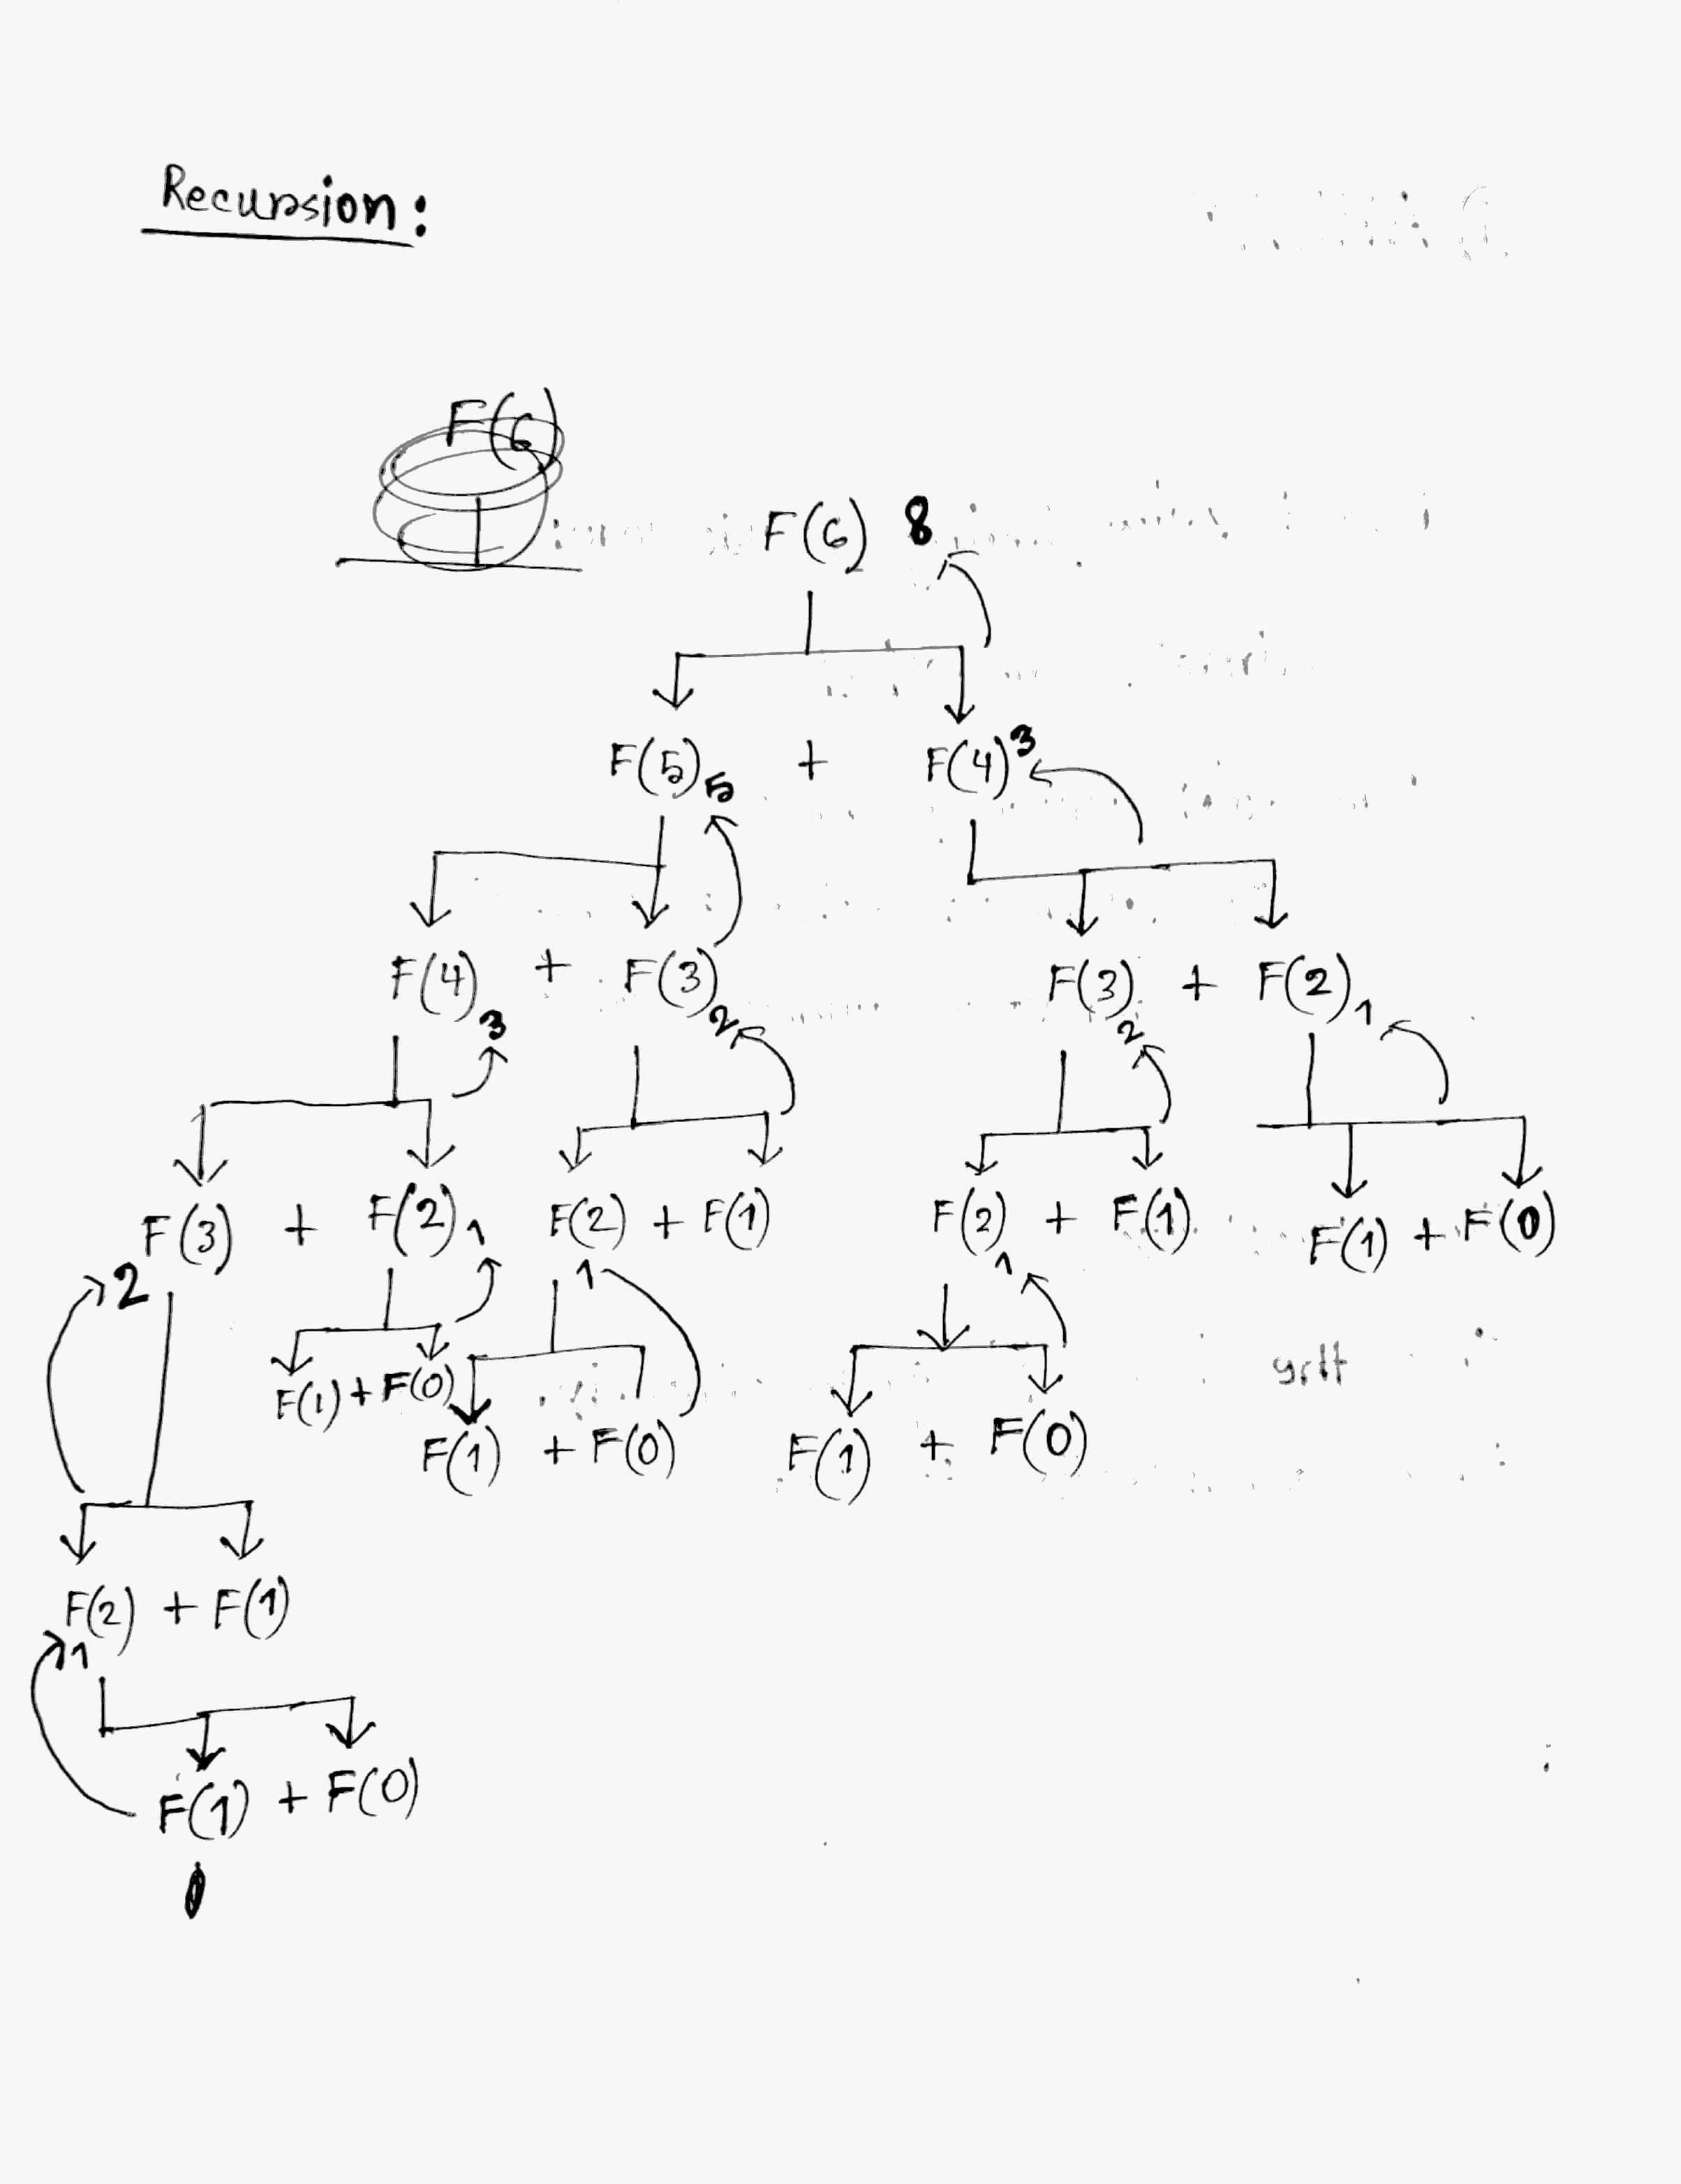 Recursion:
F(6)
F(6) 8
F(5) 5 + F(4) 3
F(4) 3 + F(3) 2 F(3) 2 + F(2) 1
F(3) 2 + F(2) 1 F(2) 1 + F(1) F(2) 1 + F(1) F(1) + F(0)
F(1) + F(0) F(1) + F(0) F(1) + F(0)
F(2) 1 + F(1)
F(1) + F(0)